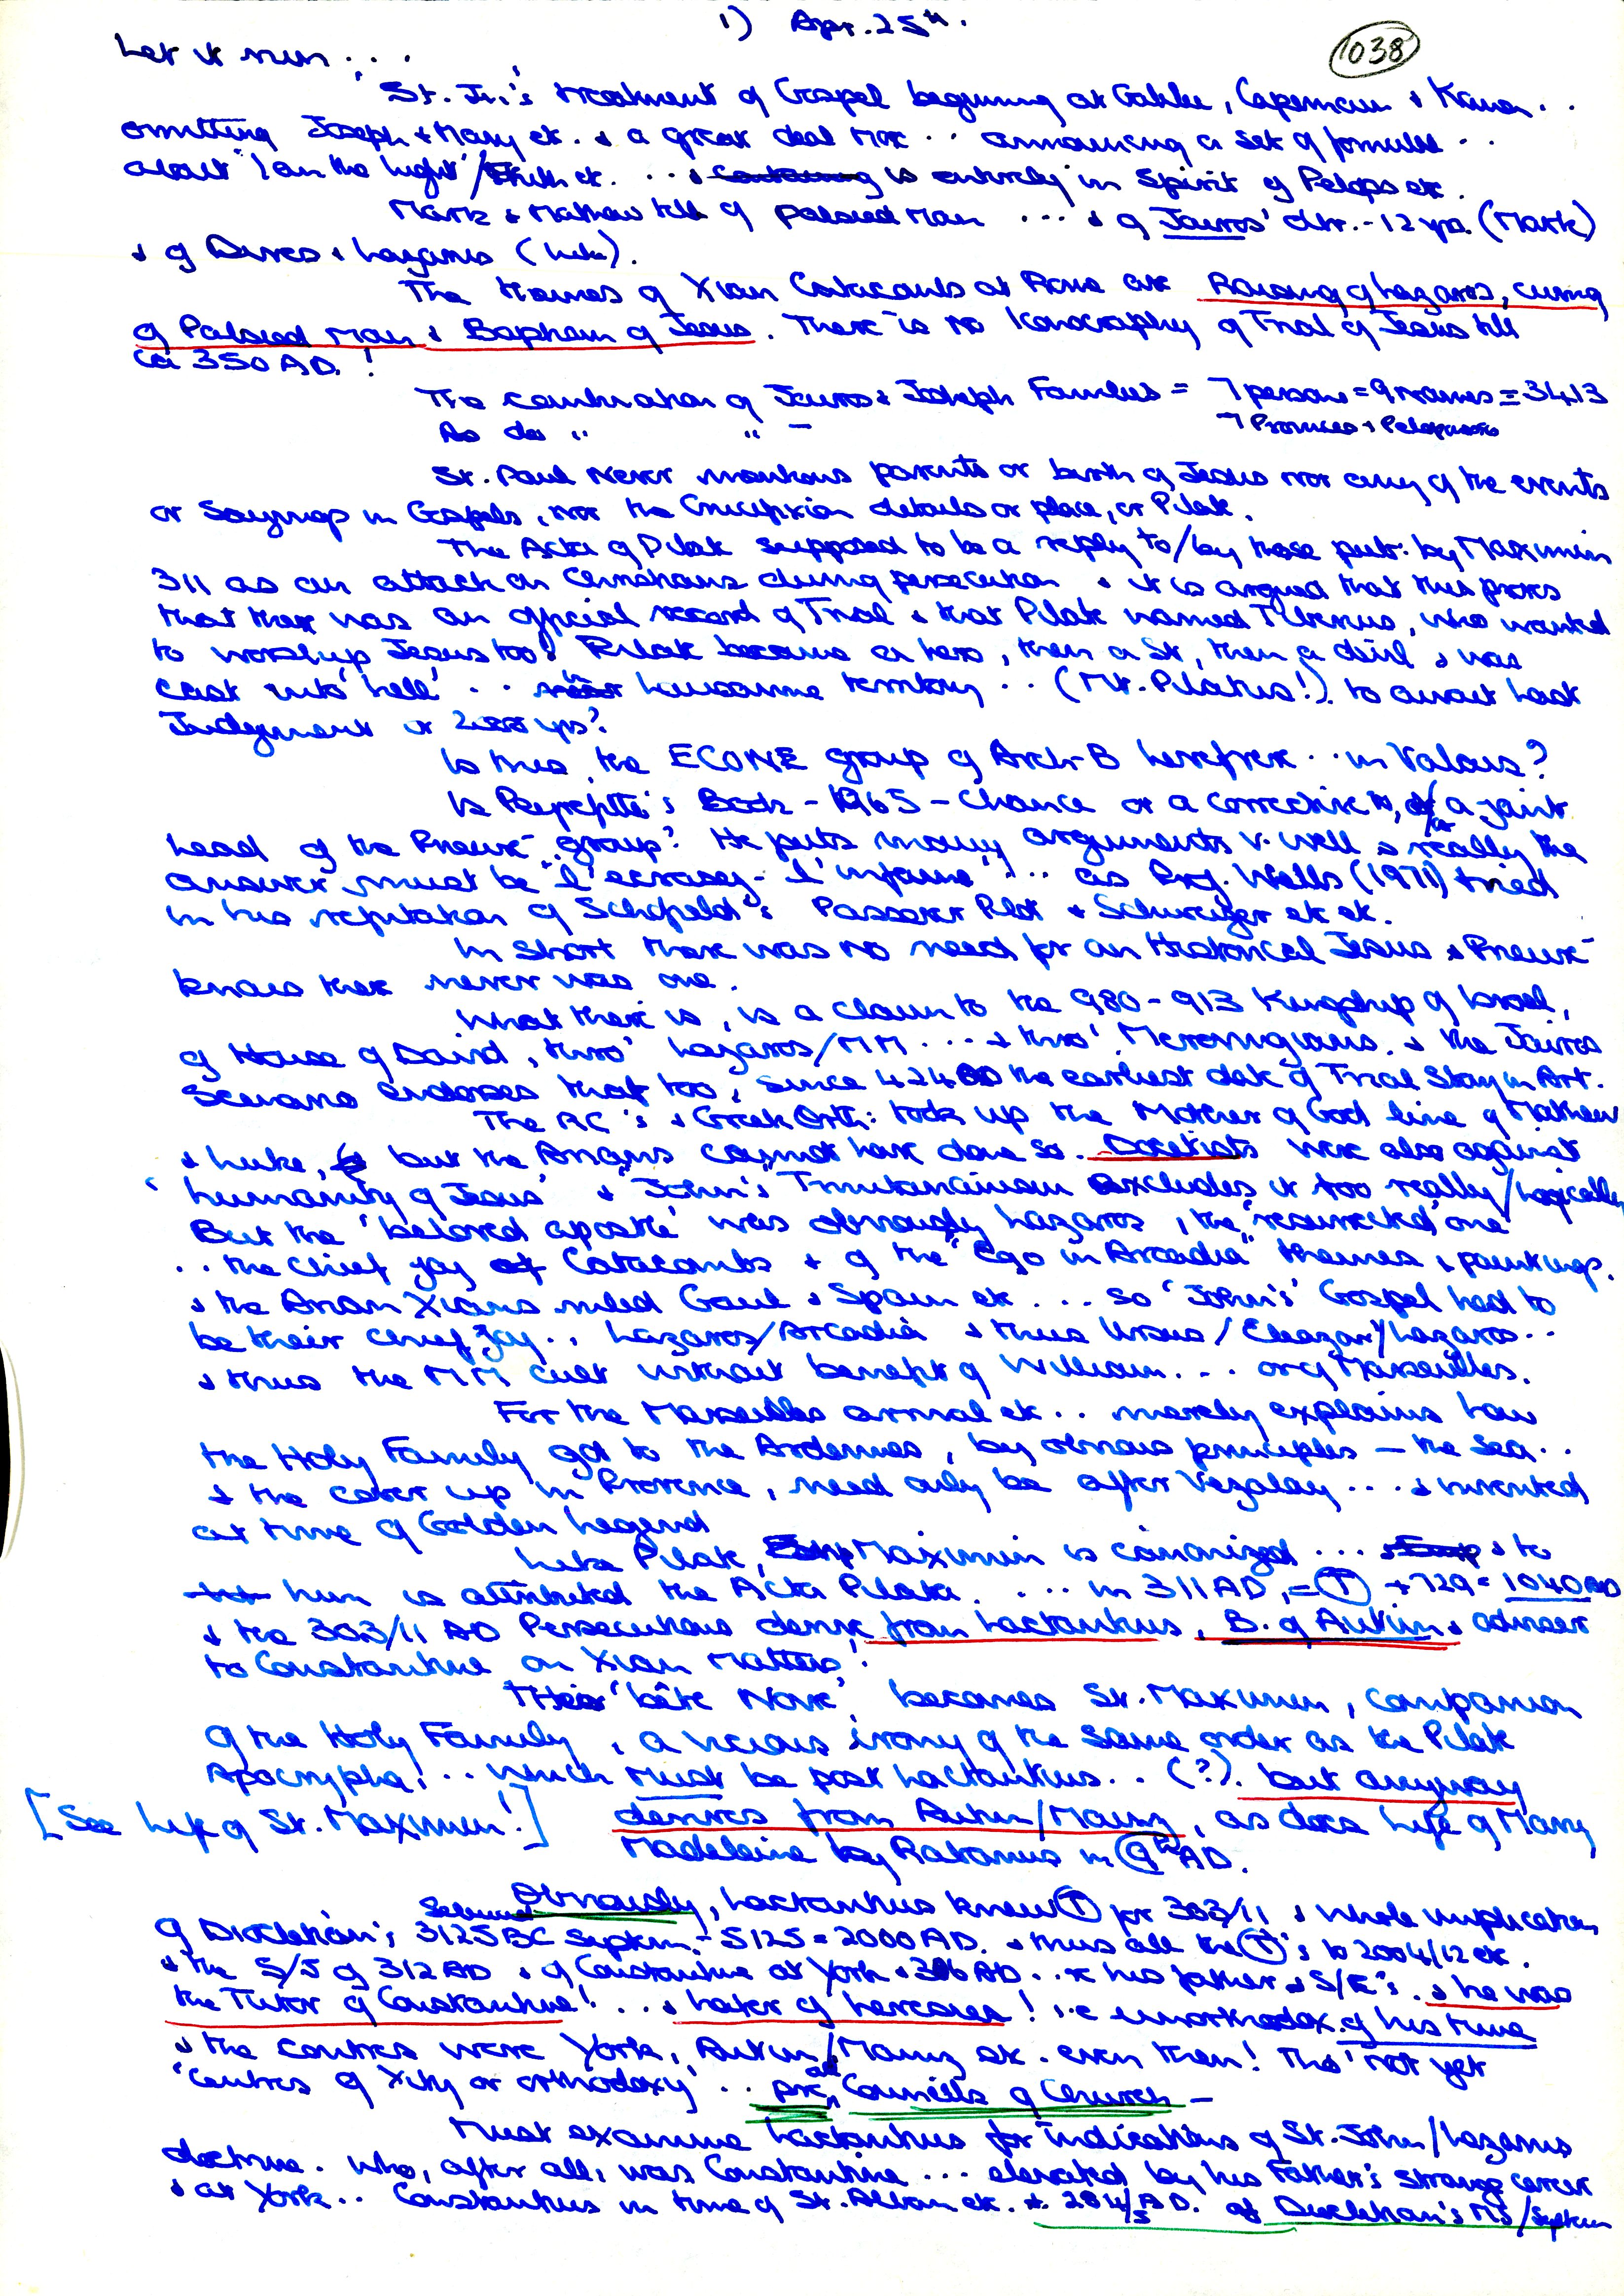 1) Apr. 25th.
1038
Let it run ...
St. Jn.'s treatment of Gospel beginning at Galilee, Capernaum + Kana..
omitting Joseph + Mary etc. + a great deal more .. announcing a set of formulae ..
about "I am the light"/Truth etc. ... + is entirely in Spirit of Pelops etc.
Mark + Mathew tell of palsied Man ... + of Jairos' dtr. - 12 yrs. (Mark)
+ of Dives + Lazarus (Luke).
The themes of Xian Catacombs at Rome are Raising of Lazaros, curing
of Palsied Man + Baptism of Jesus. There is no Iconography of Trial of Jesus till
ca 350 AD!
The combination of Jairos + Joseph Families = 7 persons = 9 names = 3413
As do " " - 7 Provinces +
St. Paul never mentions parents or birth of Jesus nor any of the events
or Sayings in Gospels, nor the Crucifixion details or place, or Pilate.
The Acta of Pilate supposed to be a reply to/by those publ: by Maximin
311 as an attack on Christians during persecution + it is argued that this proves
that there was an official record of Trial + that Pilate warned Tiberius, who wanted
to worship Jesus too! Pilate became a hero, then a St, then a devil + was
cast into 'hell' .. in Lausanne territory .. (Mt. Pilatus!). to await last
Judgement or 2000 yrs?
Is this, the ECONE group of Arch-B Lefebvre .. in Valais?
Is Peyrefitte's Book - 1965 - chance or a corrective, of a joint
head of the Prieuré group? He puts many arguments v. well + really the
answer must be "l'ecrasez - l'infame" ... as Prof. Wells (1971) tried
in his refutation of Schofield's Passover Plot + Schweitzer etc etc.
In short there was no need for an Historical Jesus + Prieuré
knows there never was one.
What there is, is a claim to the 980 - 913 Kingship of Israel,
of House of David, thro' Lazaros/MM ... + thro' Merovingians. + the Jairos
Scenario endorses that too, since 424 AD the earliest date of Trial Story in Art.
The RC's + Greek Orth: took up the Mother of God line of Mathew
+ Luke, but the Arians cannot have done so. Docetists were also against
'humanity of Jesus' + "John's" Trinitarianism excludes it too really/logically
But the 'beloved apostle' was obviously Lazaros, the "resurrected" one
.. the chief joy of Catacombs + of the "Ego in Arcadia" themes + paintings.
+ the Arian Xians ruled Gaul + Spain etc ... so 'John's' Gospel had to
be their chief joy .. Lazaros/Arcadia + thus Ursus/Eleazar/Lazaros ..
+ thus the MM cult without benefit of William ... or of Marseilles.
For the Marseilles arrival etc .. merely explains how
the Holy Family got to the Ardennes, by obvious principles - the Sea ..
+ the cover up in Provence, need only be after Vezalay ... + invented
at time of Golden Legend
Like Pilate, Maximin is canonized ... + to
him is attributed the Acta Pilate ... in 311 AD, = (T) + 729 = 1040 AD
+ the 303/11 AD Persecutions derive from Lactantius, B. of Autun + adviser
to Constantine on Xian Matters!
Their 'bête Noire' becomes St. Maximin, companion
of the Holy Family, a vicious irony of the same order as the Pilate
Apocrypha! .. which must be post Lactantius .. (?). but anyway
[See Life of St. Maximin!] derives from Autun/Marny, as does Life of Mary
Madeleine by Rabanus in 9th AD.
Obviously, Lactantius knew (T) for 303/11 + whole implication
of Diocletian's 3125 BC Septem - 5125 = 2000 AD. + thus all the (T)'s to 2004/12 etc.
+ the S/S of 312 AD + of Constantine at York + 306 AD .. + his father + S/E's. + he was
the Tutor of Constantine! ... + hater of heresies! i.e unorthodox of his time
+ the centres were York, Autun/Marny etc. even then! Tho' not yet
'Centres of Xity or orthodoxy' .. pre all Councils of Church -
Must examine Lactantius for indications of St. John/Lazarus
doctrine. Who, after all, was Constantine ... elevated by his Father's strange career
+ at York .. Constantius in time of St. Alban etc. + 284/5 AD. of Diocletian's MS/Septem